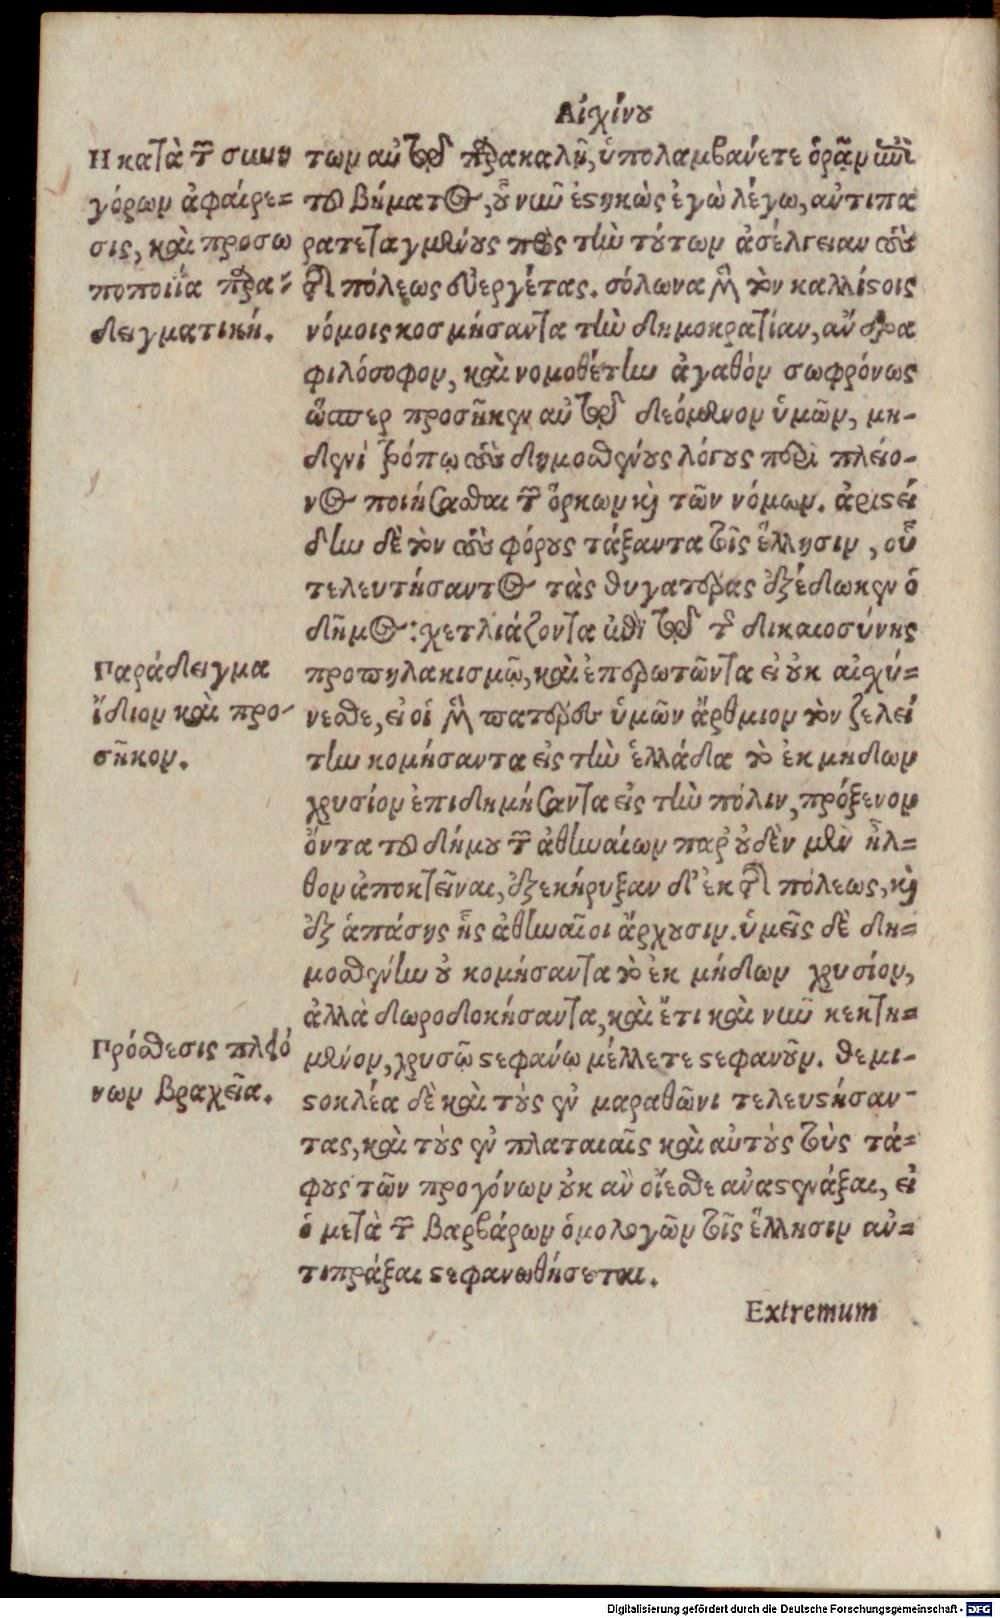 Αἰχίνου
Η κατὰ τῶν συνη
γόρων ἀφαίρε=
σις, καὶ προσω
ποποιΐα παρα=
δειγματική.
Παράδειγμα
ἴδιον καὶ προ-
σῆκον.
Πρόσθεσις πλειό
νων βραχεῖα.
των αὐτῷ παρακαλῇ, ὑπολαμβάνετε ὁρᾷν ἐπὶ
τοῦ βήματος, οὗ νῦν ἑστηκὼς ἐγὼ λέγω, ἀντιπα
ρατεταγμένους πρὸς τὴν τούτων ἀσέλγειαν τοὺς
τῆς πόλεως εὐεργέτας. σόλωνα μὲν τὸν καλλίστοις
νόμοις κοσμήσαντα τὴν δημοκρατίαν, ἄνδρα
φιλόσοφον, καὶ νομοθέτην ἀγαθὸν σωφρόνως
ὥσπερ προσῆκεν αὐτῷ δεόμενον ὑμῶν, μη-
δενὶ τρόπῳ τοὺς δημοσθένους λόγους περὶ πλείο-
νος ποιήσασθαι τῶν ὅρκων καὶ τῶν νόμων. ἀριστεί
δην δὲ τὸν τοὺς φόρους τάξαντα τοῖς ἕλλησιν, οὗ
τελευτήσαντος τὰς θυγατέρας ἐξέδωκεν ὁ
δῆμος: χετλιάζοντα ἐπὶ τῷ τῆς δικαιοσύνης
προπηλακισμῷ, καὶ ἐπερωτῶντα εἰ οὐκ αἰσχύ=
νεσθε, εἰ οἱ μὲν πατέρες ὑμῶν ἄρθμιον τὸν ζελεί
την κομήσαντα εἰς τὴν ἑλλάδα τὸ ἐκ μηδων
χρυσίον ἐπιδημήσαντα εἰς τὴν πόλιν, πρόξενον
ὄντα τοῦ δήμου τῶν ἀθηναίων παρ' οὐδὲν μὲν ἦλ=
θον ἀποκτεῖναι, ἐξεκήρυξαν δ' ἐκ τῆς πόλεως, καὶ
ἐξ ἁπάσης ἧς ἀθηναῖοι ἄρχουσιν. ὑμεῖς δὲ δη=
μοσθένην οὐ κομήσαντα τὸ ἐκ μήδων χρυσίον,
ἀλλὰ δωροδοκήσαντα, καὶ ἔτι καὶ νῦν κεκτη=
μένον, χρυσῷ στεφάνῳ μέλλετε στεφανοῦν. θεμι-
στοκλέα δὲ καὶ τοὺς ἐν μαραθῶνι τελευστήσαν-
τας, καὶ τοὺς ἐν πλαταιαῖς καὶ αὐτοὺς τοὺς τά=
φους τῶν προγόνων οὐκ ἂν οἴεσθε ἀναστενάξαι, εἰ
ὁ μετὰ τῶν βαρβάρων ὁμολογῶν τοῖς ἕλλησιν ἀν=
τιπράξαι στεφανωθήσεται.
Extremum
Digitalisierung gefördert durch die Deutsche Forschungsgemeinschaft - DFG